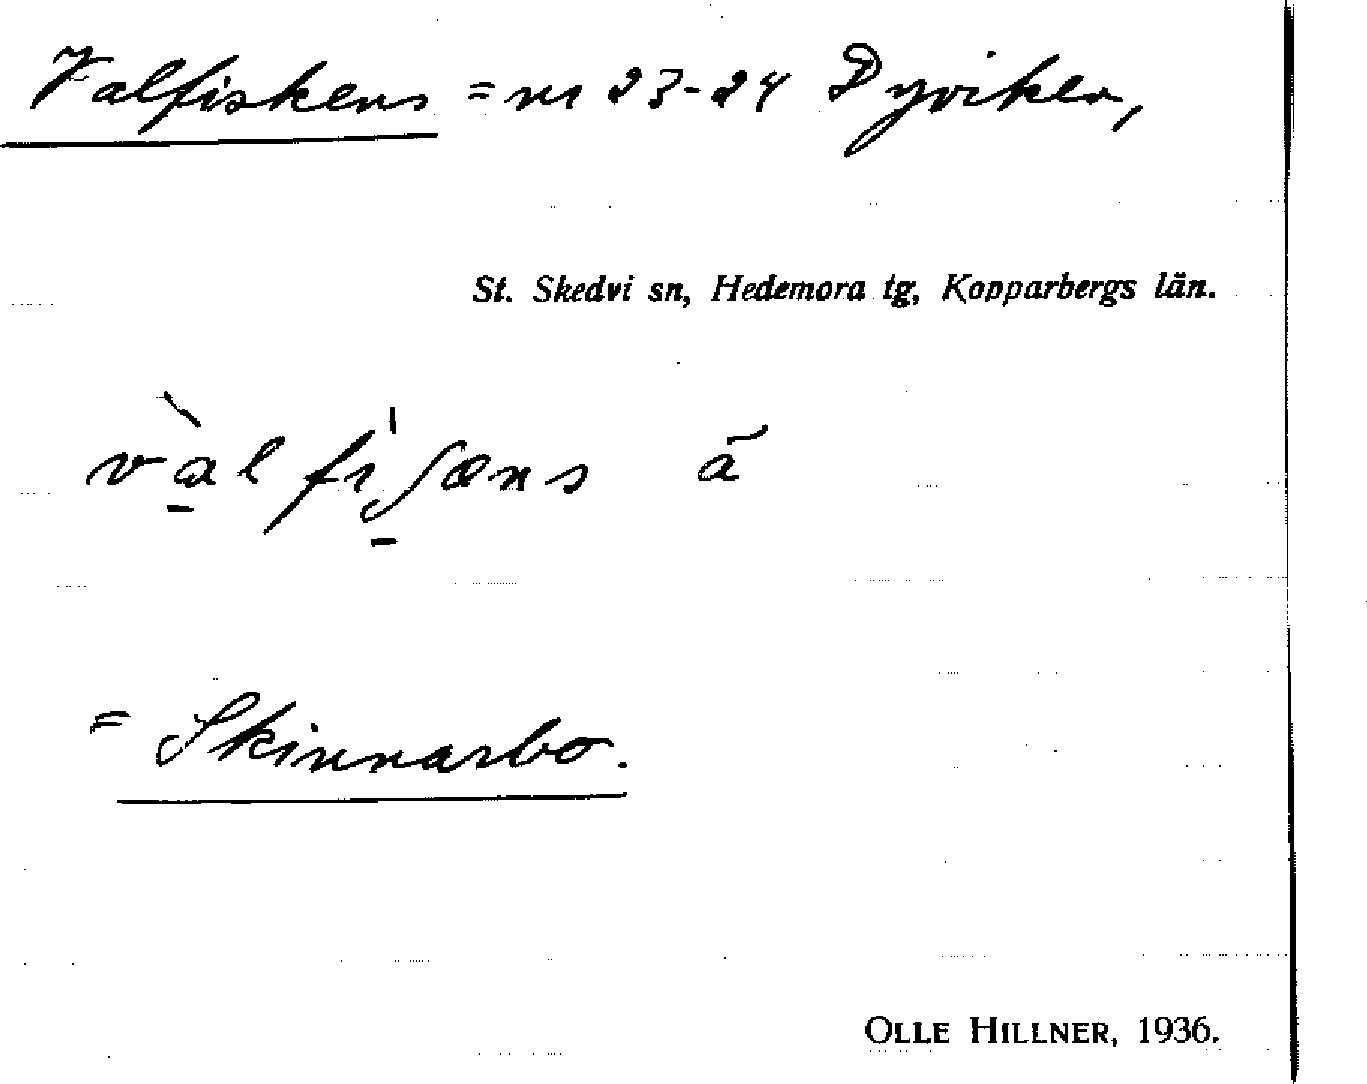 Valfiskens = nr 23-24 Dyviken,
St. Skedvi sn, Hedemora tg, Kopparbergs län.
vàl fiʃæns ã
= Skinnarbo.
OLLE HILLNER, 1936.